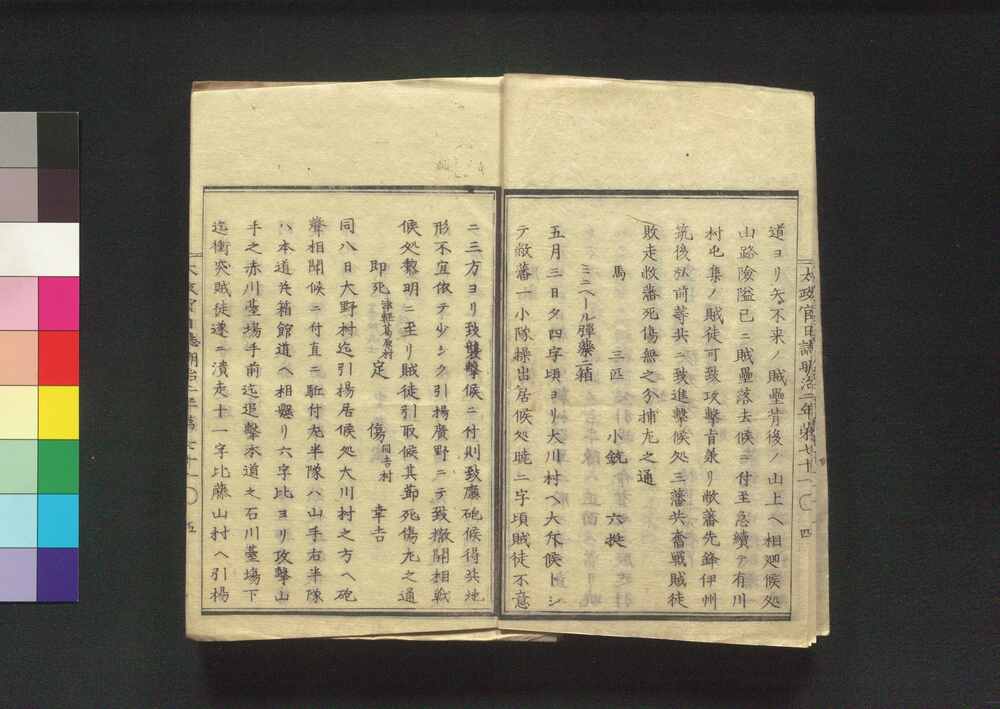 太政官日誌明治二年第七十一〇四
道ヨリ矢不来ノ賊壘背後ノ山上ヘ相廻候処
山路險隘已ニ賊壘落去候ニ付至急續テ有川
村屯集ノ賊徒可致攻撃旨兼リ敝藩先鋒伊州
筑後弘前等共ニ致進擊候処三藩共奮戰賊徒
敗走敝藩死傷無之分捕左之通
馬 三匹 小銃 六挺
ミニヘール彈藥二箱
五月三日夕四字頃ヨリ大川村ヘ大斥候トシ
テ敝藩一小隊操出居候処暁二字頃賊徒不意
ニ三方ヨリ致襲擊候ニ付則致應砲候得共地
形不宜依テ少シク引揚廣野ニテ致撒開相戰
候処黎明ニ至リ賊徒引取候其節死傷左之通
即死 津軽葛原村 定 傷 同吉村 幸吉
同八日大野村迄引揚居候処大川村之方ヘ砲
聲相聞候ニ付直ニ駈付左半隊ハ山手右半隊
ハ本道矢箱館道ヘ相懸リ六字比ヨリ攻撃山
手之赤川臺場手前迄追擊本道之石川臺場下
迄衝突賊徒遂ニ潰走十一字比藤山村ヘ引揚
太政官日誌明治二年第七十一〇五